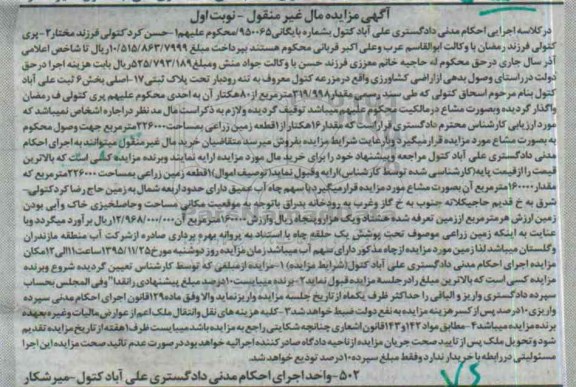 آگهی مزایده مال غیر منقول - نوبت اول
در کلاسه اجرایی احکام مدنی دادگستری علی آباد کتول بشماره بایگانی ۹۵۰۰۶۵/محکوم علیهم ۱-حسن کرد کتولی فرزند مختار ۲- پری
کتولی فرزند رمضان با وکالت ابوالقاسم عرب وعلی اکبر قربانی محکوم هستند بپرداخت مبلغ ۱۰/۵۱۵/۸۶۳/۷۹۹۹ریال تا شاخص اعلامی
آذر سال جاری در حق محکوم له حاجیه خانم معززی فرزند حسن با وکالت جواد منش ومبلغ ۵۲۵/۷۹۳/۱۸۹ریال بابت هزینه اجرا در حق
دولت در راستای وصول بدهی از اراضی کشاورزی واقع در مزرعه کتول معروف به تنه رودبار تحت پلاک ثبتی ۱۷-اصلی بخش ۶ ثبت علی آباد
کتول بنام مرحوم اسحاق کتولی که طی سند رسمی مقدار ۳۱۹/۹۹۸مترمربع از ۸۰هکتار آن به احدی محکوم علیهم پری کتولی ف رمضان
واگذار گردیده وبصورت مشاع در مالکیت محکوم علیهم میباشد توقیف گردیده ولازم به ذکر است مال مد نظر در اجاره اشخاص نمیباشد که
مورد ارزیابی کارشناس محترم دادگستری قرار گرفت که مقدار ۱۶هکتار از ۱قطعه زمین زراعی بمساحت ۲۲۶۰۰۰مترمربع جهت وصول محکوم
به بصورت مشاع مورد مزایده قرار میگیرد وبارعایت شرایط مزایده بفروش میرسد متقاضیان خرید مال غیر منقول میتوانند به اجرای احکام
مدنی دادگستری علی آباد کتول مراجعه وپیشنهاد خود را برای خرید مال مورد مزایده ارایه نمایند وبرنده مزایده کسی است که بالاترین
قیمت را از قیمت پایه(کارشناسی شده توسط کارشناس)ارایه وقبول نماید(توصیف اموال)۱قطعه زمین زراعی بمساحت ۲۲۶۰۰۰مترمربع که
مقدار ۱۶۰۰۰۰مترمربع آن بصورت مشاع مورد مزایده قرار میگیرد باسهم چاه آب عمیق دارای حدود اربعه شمال به زمین حاج رضا کرد کتولی-
شرق به خ قدیم حاجیکلاته جنوب به خ گاز وغرب به رودخانه بدراق باتوجه به موقعیت مکانی مساحت وحاصلخیزی خاک وآبی بودن
زمین ارزش هر مترمربع از زمین تعرفه شده هشتاد ویک هزاری پنجاه ریال وارزش ۱۶۰۰۰۰مترمربع آن ۱۲/۹۶۸/۰۰۰/۰۰۰ریال بر آورد میگردد وبا
عنایت به اینکه زمین زراعی موصوف تحت پوشش یک حلقه چاه با استناد به پروانه بهره برداری صادره از شرکت آب منطقه مازندران
وگلستان میباشد لذا زمین مورد مزایده از چاه مذکور دارای سهم آب میباشد زمان مزایده روز دوشنبه مورخ ۱۳۹۵/۱۱/۲۵ساعت ۱۱الی ۱۲مکان
مزایده اجرای احکام مدنی دادگستری علی آباد کتول(شرایط مزایده)۱-مزایده از مبلغی که توسط کارشناس تعیین گردیده شروع وبرنده
مزایده کسی است که بالاترین مبلغ را در جلسه مزایده قبول نماید ۲-برنده میبایست ۱۰درصد مبلغ پیشنهادی رانقدا" وفی المجلس بحساب
سپرده دادگستری واریز و الباقی را حداکثر ظرف یکماه از تاریخ جلسه مزایده واریز نماید والا وفق ماده ۱۲۹قانون اجرای احکام مدنی سپرده
واریزی ۱۰درصد پس از کسر هزینه مزایده به نفع دولت ضبط خواهد شد ۳-کلیه هزینه های نقل وانتقال ملک اعم از عوارض مالیات وغیره بعهده
برنده مزایده میباشد ۴-مطابق مواد ۱۴۲و۱۴۳قانون اشعاری چنانچه شکایتی راجع به مزایده باشد میبایست ظرف ۱هفته از تاریخ مزایده تقدیم
شود وتحویل ملک پس از تایید صحت جریان مزایده از ناحیه دادگاه صادر کننده اجرائیه خواهد بود در صورت عدم تائید صحت مزایده این اجرا
مسئولیتی در رابطه با خریدار ندارد وفقط مبلغ سپرده ۱۰درصد تودیع خواهد شد.
۵۰۲-واحد اجرای احکام مدنی دادگستری علی آباد کتول-میر شکار